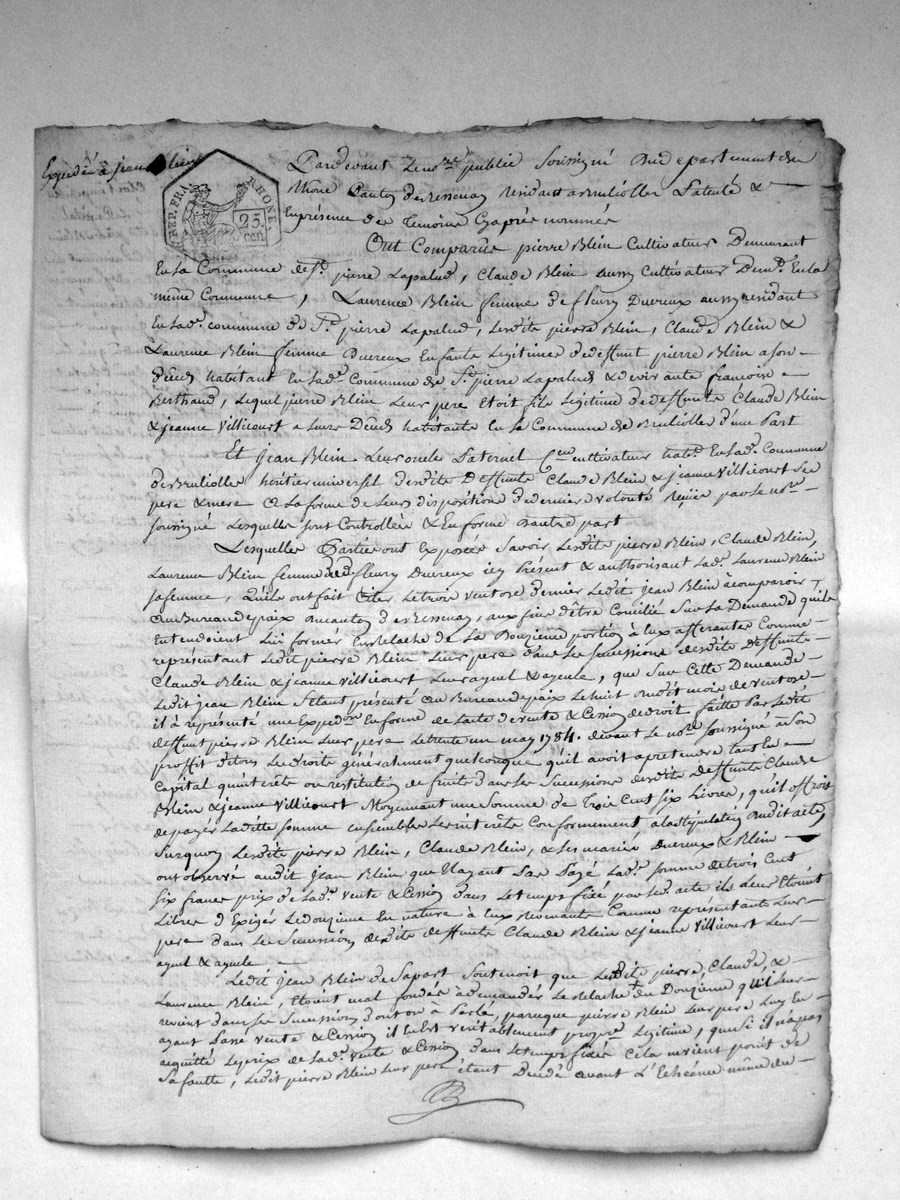 Expédié à jean Blein
REP. FRA. RHONE.
25. cen.
Pardevant Le nore public Soussigné Du departement du
Rhone Canton de Bessenay residant a Brulliolles Patenté &
En presence des Temoins Cy après nommés
Ont Comparus pierre Blein Cultivateur Demeurant
En la Commune de St. pierre Lapalud, Claude Blein aussy Cultivateur Demt. En la
même Commune, Laurence Blein femme de fleury Ducreux aussy residant
En lad.e commune de St. pierre Lapalud, Lesdits pierre Blein, Claude Blein &
Laurence Blein femme Ducreux Enfants Légitimes de deffunt pierre Blein a son
deces habitant En lad.e Commune de St. pierre Lapalud & de vivante francoise
Berthaud, Lequel pierre Blein Leur pere Etoit fils Legitime de deffunts Claude Blein
& jeanne Villicourt a leurs Décès habitants En la Commune de Brulliolles d'une Part
Et jean Blein Leur oncle Paternel cultivateur habt. En lad.e Commune
de Brulliolles heritier universel desdits Deffunts Claude Blein & jeanne Villicourt Ses
pere & mere a La forme de Leurs dispositions de derniere volonté Reçües par Le nore
soussigné Lesquelles sont Controllées & En forme d'autre part
Lesquelles Parties ont Exposées Savoir Lesdits pierre Blein, Claude Blein,
Laurence Blein femme dud. fleury Ducreux icy Present & authorisant Lad.e Laurence Blein
sa femme, quils ont fait Citer Le trois ventose dernier Ledit jean Blein à comparoir
au Bureau de paix du canton de Bessenay, aux fins d'être Concilié Sur La Demande quils
Entendoient Lui former En relache de La Douzieme portion à Eux afferante Comme
représentant Ledit pierre Blein Leur pere dans Les successions desdits deffunts
Claude Blein & jeanne Villicourt Leur ayeul & ayeule, que Sur Cette Demande
Ledit jean Blein S'étant présenté au Bureau de paix Le huit dudit mois de ventose
il a représenté une Expedon En forme de Lacte de vente & Cession de droit faitte Par Ledit
deffunt pierre Blein Leur pere Le trente un may 1784. devant Le nore soussigné a son
proffit de tous Les droits généralement quelconques qu'il avoit a pretendre tant En
Capital qu'interêts ou restitution de fruits dans Les Successions desdits deffunts Claude
Blein & jeanne Villicourt Moyennant une Somme de Trois Cent Six Livres, qu'il offroit
de payer Laditte somme ensemble Les interêts Conformement a la stipulation dudit acte
Surquoy Lesdits pierre Blein, Claude Blein, & Les mariés Ducreux & Blein
ont observé audit jean Blein que N'ayant Pas Payé Lad.e somme de trois Cent
Six francs prix de Lad.e vente & Cession dans Le temps fixée par led. acte ils Leur Etoient
Libres d'Exiger Le douzieme En nature à Eux Revenants Comme représentants Leur
pere dans Les Successions desdits deffunts Claude Blein & jeanne Villicourt Leur
ayeul & ayeule
Ledit jean Blein de Sa part Soutenoit que Lesdits pierre, Claude, &
Laurence Blein, Etoient mal fondés à demander Le relache du Douzieme qu'il Leur
revient dans Les Successions dont on a Parlé, parceque pierre Blein Leur pere Luy En
ayant Passé vente & Cession il En Est veritablement propre. Legitime, que si il n'a pas
acquitté Le prix de Lad.e vente & Cession dans Le temps fixée Cela ne vient point de
Sa faulte, Ledit pierre Blein leur pere étant Décédé avant L'Echéance même du